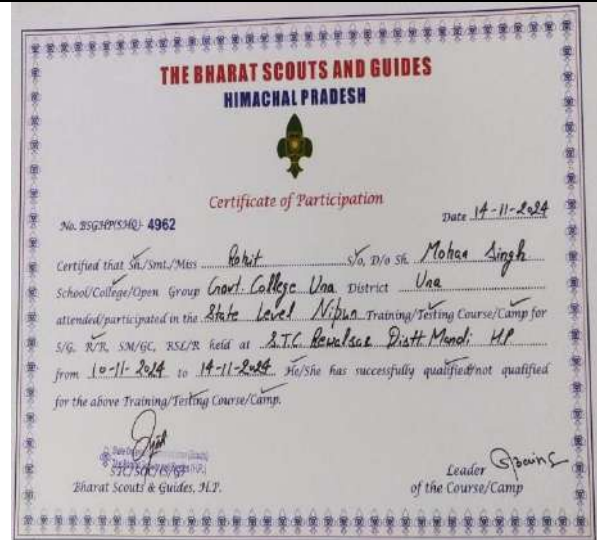 THE BHARAT SCOUTS AND GUIDES
HIMACHAL PRADESH
Certificate of Participation
No. BSGHP(SHQ)- 4962 Date 14-11-2024
Certified that Sh./Smt./Miss Rohit S/o, D/o Sh. Mohan Singh
School/College/Open Group Govt. College Una District Una
attended/participated in the State Level Nipun Training/Testing Course/Camp for
S/G, R/R, SM/GC, RSL/R held at S.T.C. Rewalsar Distt. Mandi HP
from 10-11-2024 to 14-11-2024 He/She has successfully qualified/not qualified
for the above Training/Testing Course/Camp.
STC/SOC/(S/G)
Bharat Scouts & Guides, H.P.
Leader
of the Course/Camp